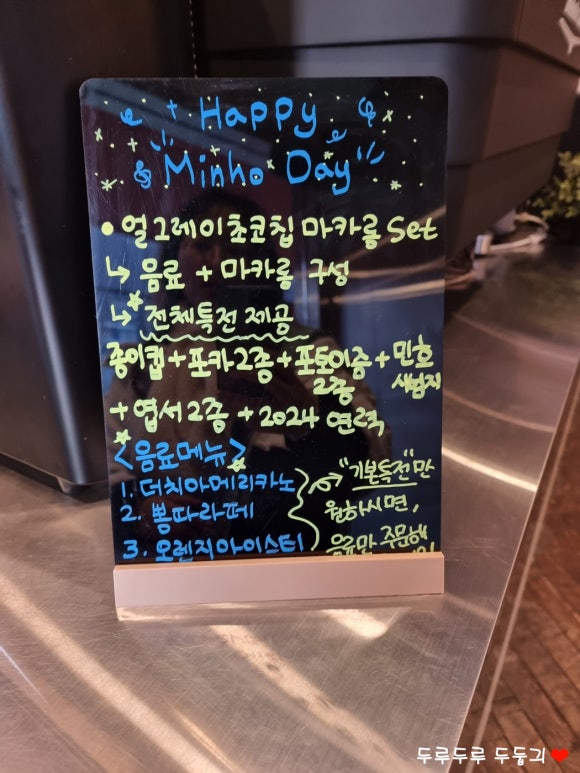 Happy
Minho Day
얼그레이초코칩 마카롱 Set
↳ 음료 + 마카롱 구성
↳ 전체특전 제공
종이컵 + 포카 2종 + 포토이즘 2종 + 민호
+ 엽서 2종 + 2024 연력
<음료메뉴>
1. 더치아메리카노
2. 뽕따라떼
3. 오렌지아이스티
"기본특전"만
원하시면,
음료만 주문해
두루두루 두둠긔❤